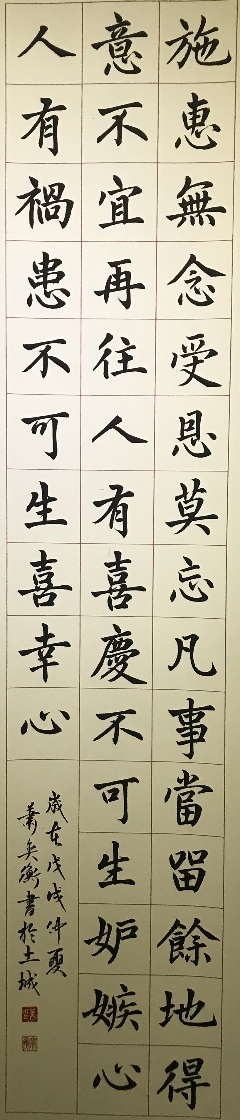 施惠無念受恩莫忘凡事當留餘地得
意不宜再往人有喜慶不可生妒嫉心
人有禍患不可生喜幸心
歲在戊戌仲夏
蕭奐衡書於土城